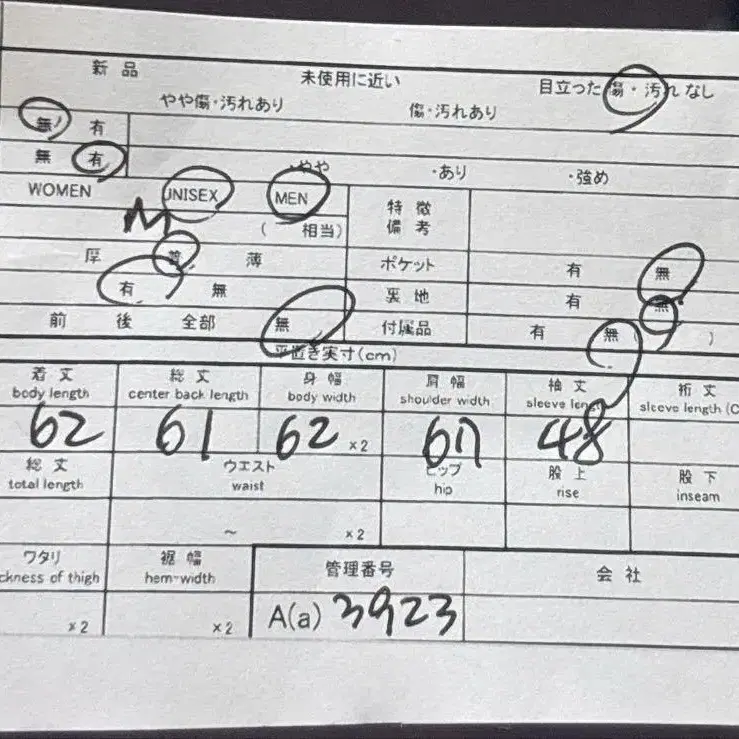 新品 未使用に近い 目立った傷・汚れなし
やや傷・汚れあり 傷・汚れあり
無 有
無 有 ・やや ・あり ・強め
WOMEN UNISEX MEN 特徴
M ( 相当) 備考
厚 普 薄 ポケット 有 無
有 無 裏地 有 無
前 後 全部 無 付属品 有 無 ( )
平置き実寸(cm)
着丈 総丈 身幅 肩幅 袖丈 裄丈
body length center back length body width shoulder width sleeve length sleeve length (C
62 61 62 ×2 48
総丈 ウエスト ヒップ 股上 股下
total length waist hip rise inseam
~ ×2
ワタリ 裾幅 管理番号 会社
ckness of thigh hem-width
×2 ×2 A(a) 3923